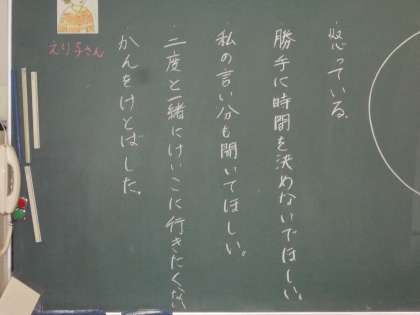 えり子さん
・怒っている。
・勝手に時間を決めないでほしい。
・私の言い分も聞いてほしい。
・二度と一緒にけいこに行きたくない
かんをけとばした。